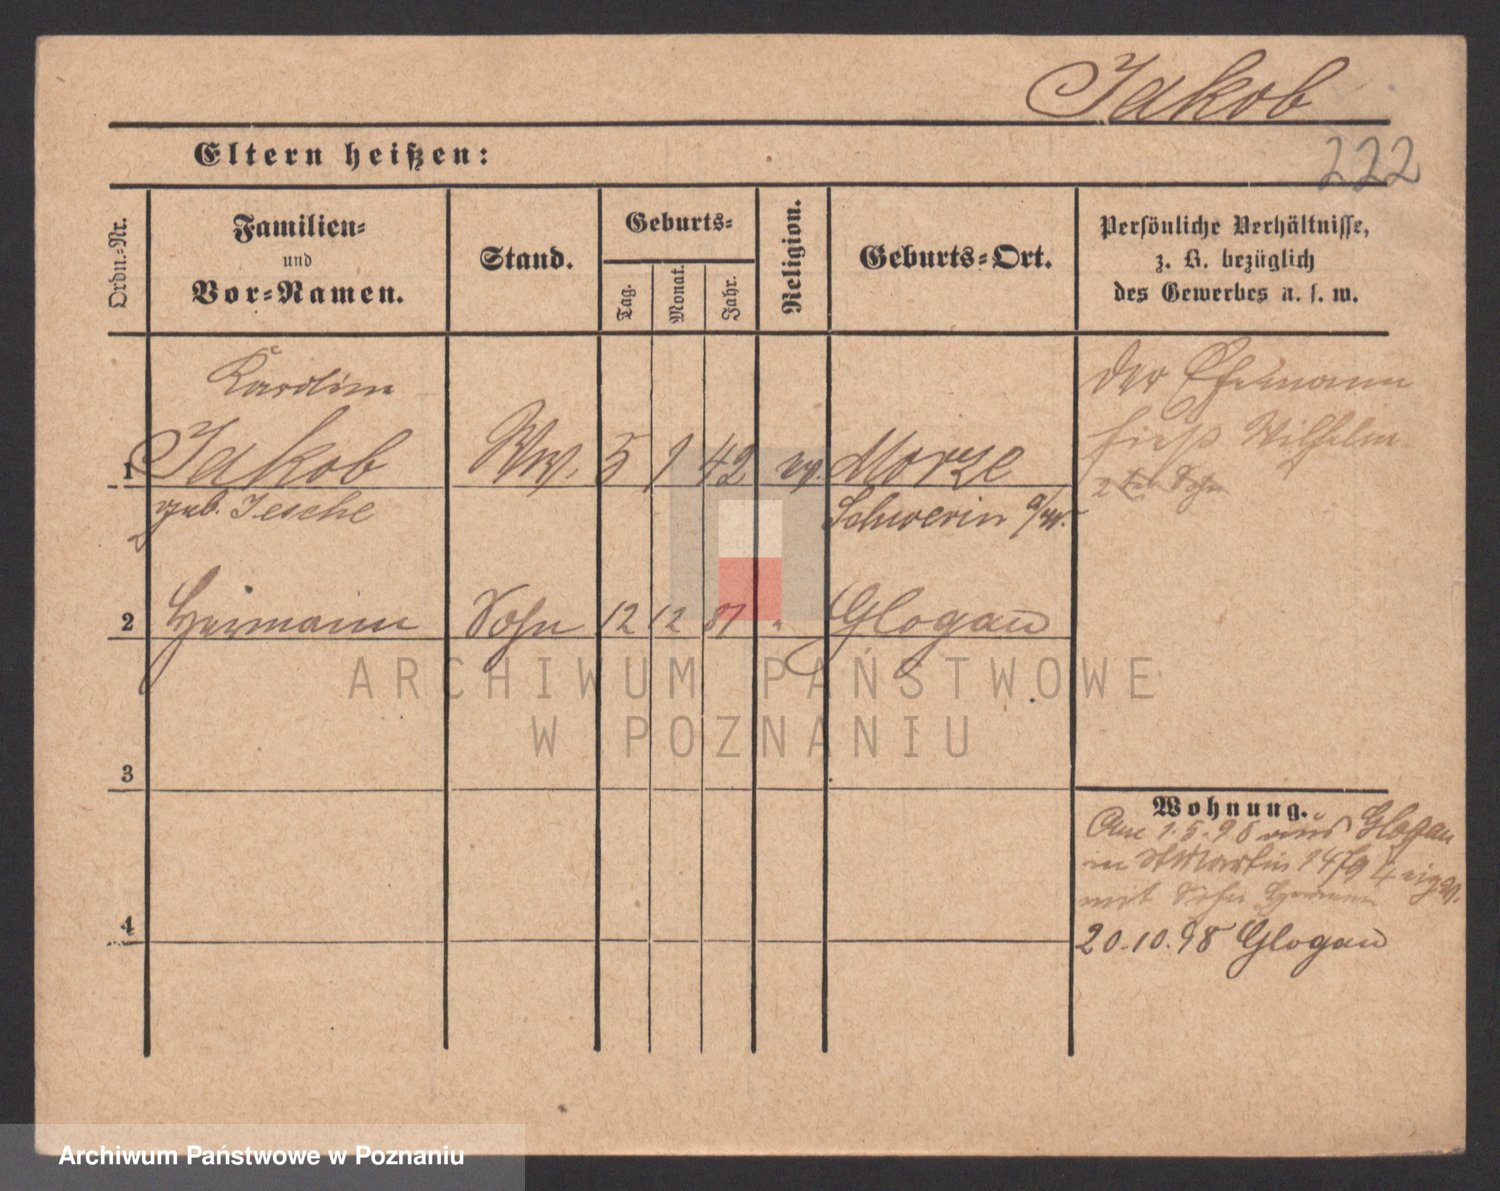 Jakob
Eltern heißen:
222
Ordn.-Nr.
Familien-
und
Vor-Namen.
Stand.
Geburts-
Tag.
Monat.
Jahr.
Religion.
Geburts-Ort.
Persönliche Verhältnisse,
z. B. bezüglich
des Gewerbes u. s. w.
Karoline
1 Jakob Ww. 5 9 42 ev. Morze
geb. Jesche Schwerin a/W.
der Ehemann
hieß Wilhelm
2 Hermann Sohn 12 12 81 " Glogau
ARCHIWUM PAŃSTWOWE
W POZNANIU
3
Wohnung.
Am 1.5.98 aus Glogau
in St Martin
mit Sohn Hermann
4
20.10.98 Glogau
Archiwum Państwowe w Poznaniu